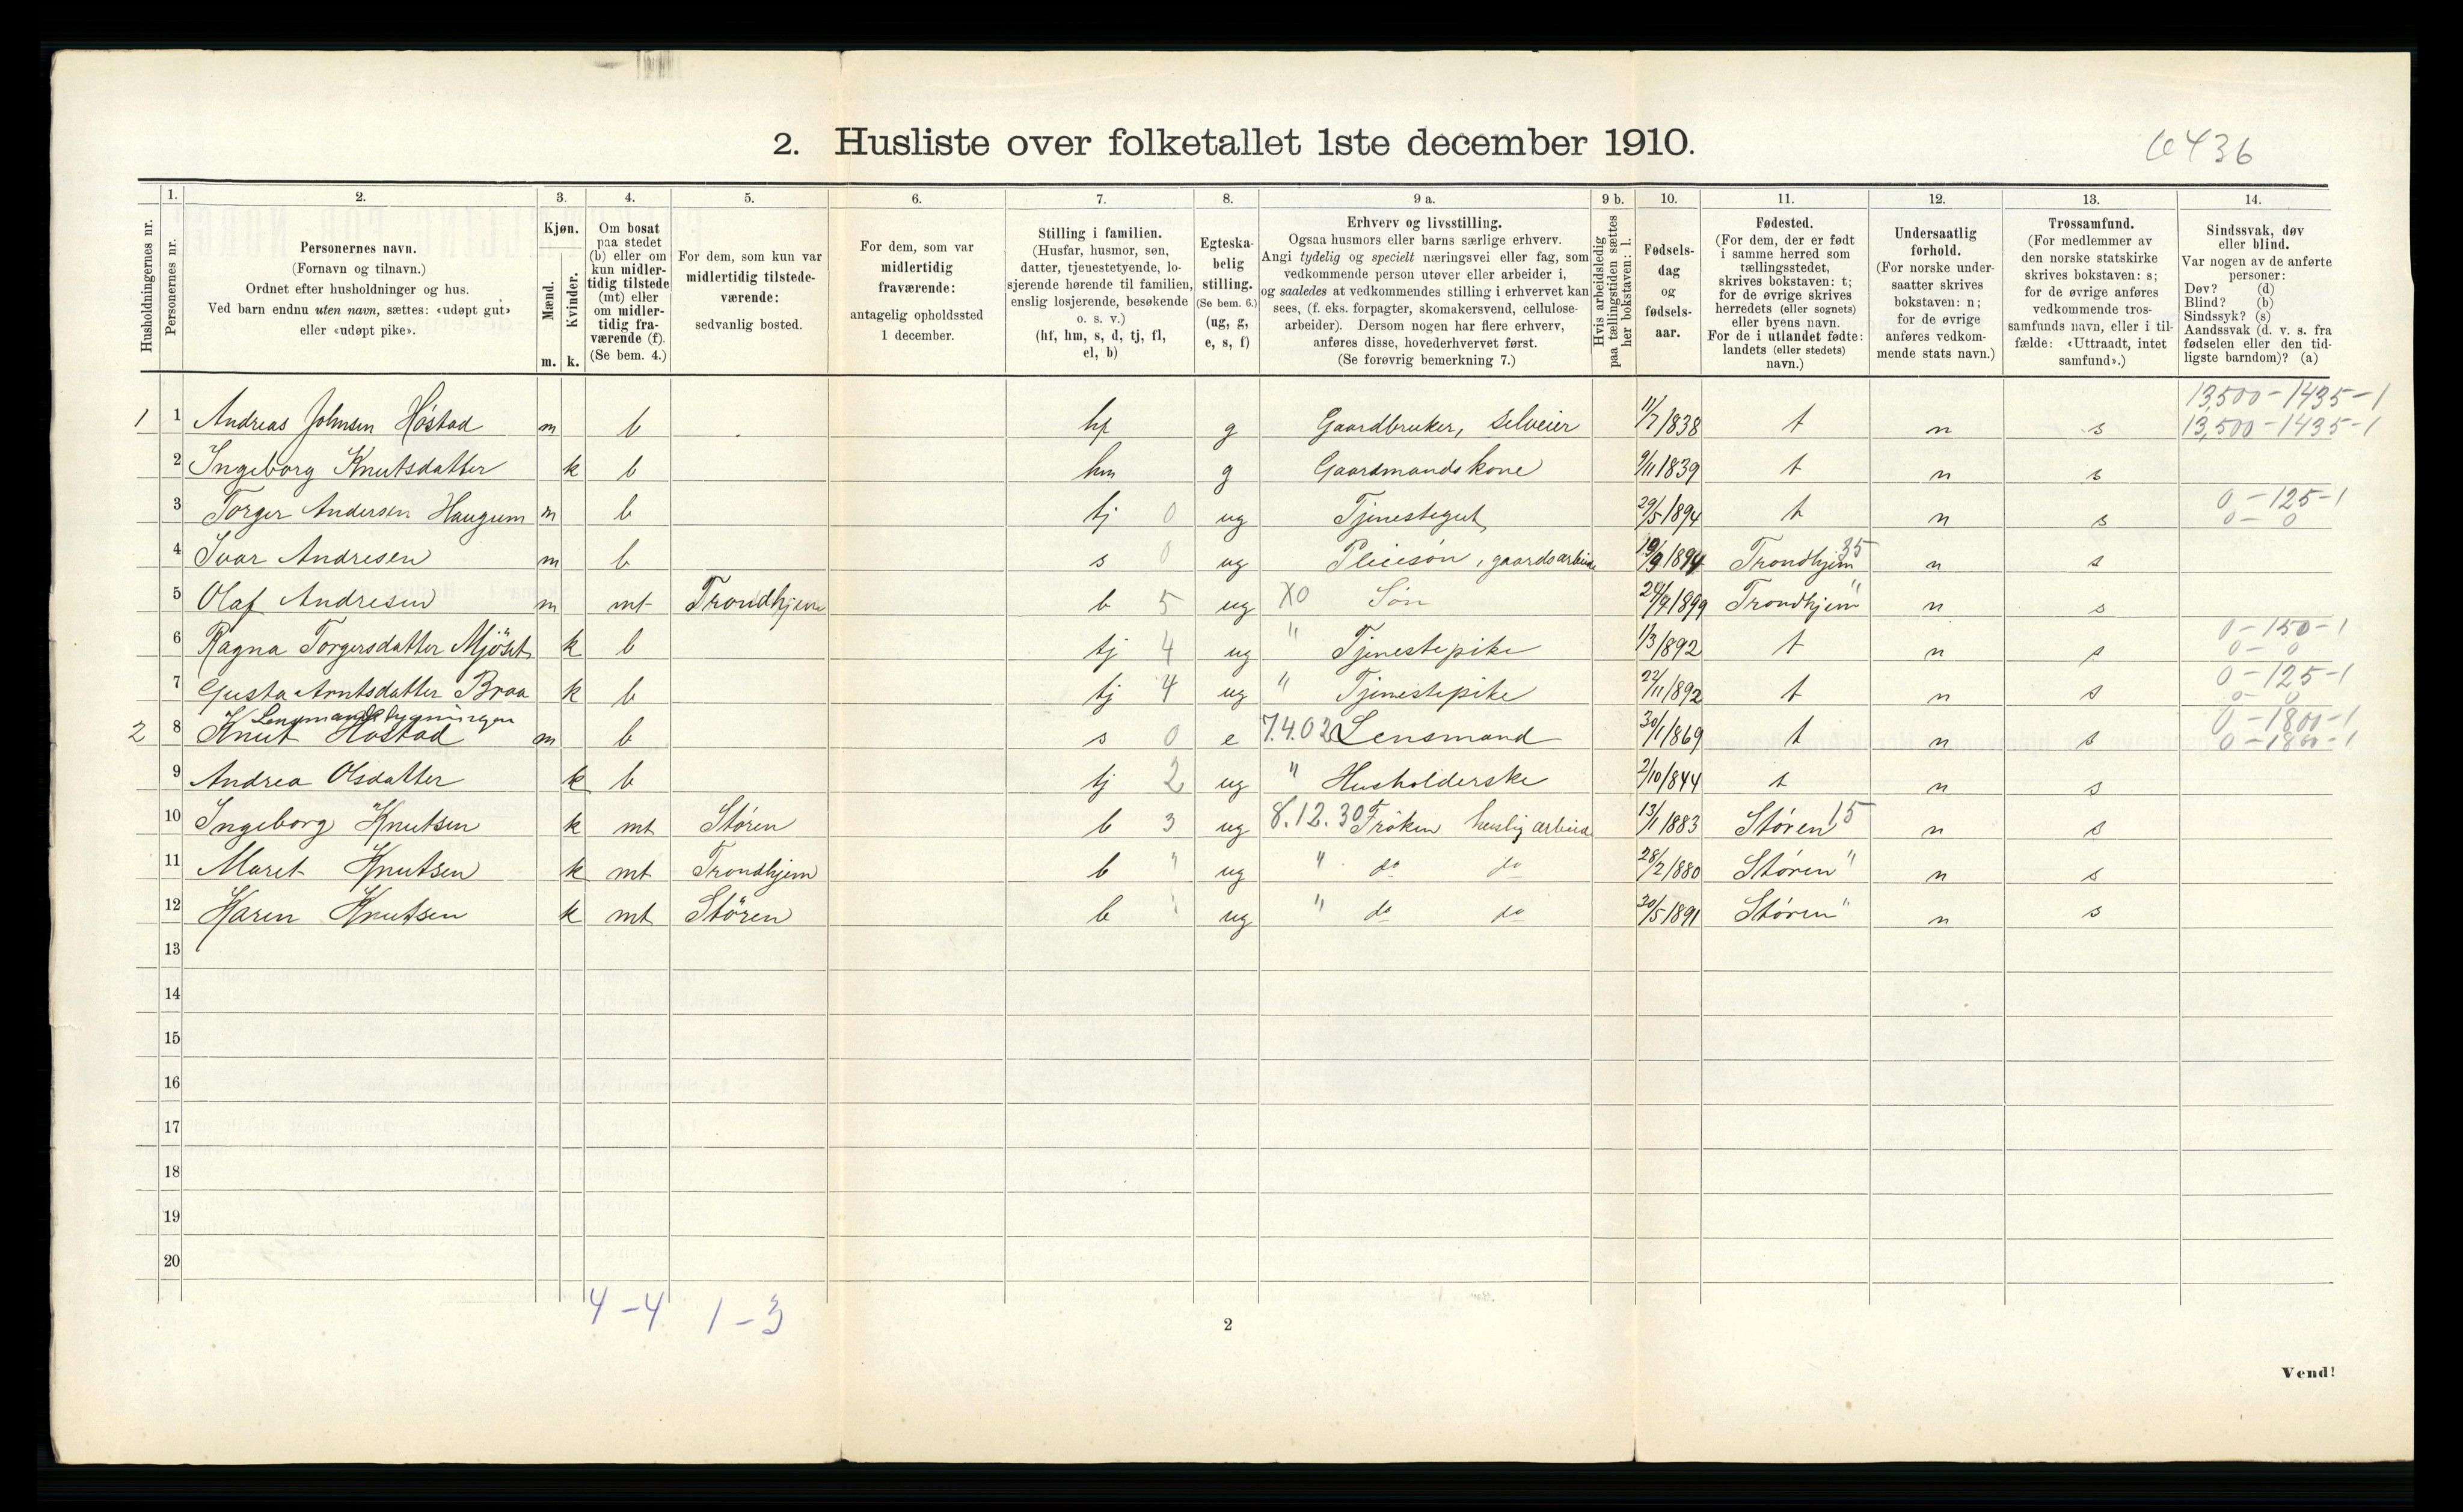 2. Husliste over folketallet 1ste december 1910.
6436
1. 2. 3. 4. 5. 6. 7. 8. 9 a. 9 b. 10. 11. 12. 13. 14.
Husholdningernes nr.
Personernes nr.
Personernes navn.
(Fornavn og tilnavn.)
Ordnet efter husholdninger og hus.
Ved barn endnu uten navn, sættes: «udøpt gut»
eller «udøpt pike».
Kjøn.
Mænd.
Kvinder.
m. k.
Om bosat
paa stedet
(b) eller om
kun midler-
tidig tilstede
(mt) eller
om midler-
tidig fra-
værende (f).
(Se bem. 4.)
For dem, som kun var
midlertidig tilstede-
værende:
sedvanlig bosted.
For dem, som var
midlertidig
fraværende:
antagelig opholdssted
1 december.
Stilling i familien.
(Husfar, husmor, søn,
datter, tjenestetyende, lo-
sjerende hørende til familien,
enslig losjerende, besøkende
o. s. v.)
(hf, hm, s, d, tj, fl,
el, b)
Egteska-
belig
stilling.
(Se bem. 6.)
(ug, g,
e, s, f)
Erhverv og livsstilling.
Ogsaa husmors eller barns særlige erhverv.
Angi tydelig og specielt næringsvei eller fag, som
vedkommende person utøver eller arbeider i,
og saaledes at vedkommendes stilling i erhvervet kan
sees, (f. eks. forpagter, skomakersvend, cellulose-
arbeider). Dersom nogen har flere erhverv,
anføres disse, hovederhvervet først.
(Se forøvrig bemerkning 7.)
Hvis arbeidsledig
paa tællingstiden sættes
her bokstaven: l.
Fødsels-
dag
og
fødsels-
aar.
Fødested.
(For dem, der er født
i samme herred som
tællingsstedet,
skrives bokstaven: t;
for de øvrige skrives
herredets (eller sognets)
eller byens navn.
For de i utlandet fødte:
landets (eller stedets)
navn.)
Undersaatlig
forhold.
(For norske under-
saatter skrives
bokstaven: n;
for de øvrige
anføres vedkom-
mende stats navn.)
Trossamfund.
(For medlemmer av
den norske statskirke
skrives bokstaven: s;
for de øvrige anføres
vedkommende tros-
samfunds navn, eller i til-
fælde: «Uttraadt, intet
samfund».)
Sindssvak, døv
eller blind.
Var nogen av de anførte
personer:
Døv? (d)
Blind? (b)
Sindssyk? (s)
Aandssvak (d. v. s. fra
fødselen eller den tid-
ligste barndom)? (a)
13,500-1435-1
1 1 Andreas Johnsen Höstad m b hf g Gaardbruker, selveier 11/7 1838 t n s 13,500-1435-1
2 Ingeborg Knutsdatter k b hm g Gaardmandskone 9/11 1839 t n s
0-125-1
3 Torger Andersen Haugum m b tj 0 ug Tjenestegut 29/5 1894 t n s 0-0
4 Ivar Andresen m b s 0 ug Pleiesøn, gaardsarbeide 19/9 1894 Trondhjem 35 n s
5 Olaf Andresen m mt Trondhjem b 5 ug X0 Søn 24/9 1899 Trondhjem " n s
0-150-1
6 Ragna Torgersdatter Mjöset k b tj 4 ug " Tjenestepike 1/3 1892 t n s 0-0
0-125-1
7 Gusta Arntsdatter Braa k b tj 4 ug " Tjenestepike 22/11 1892 t n s 0-0
Lensmandsbygningen
0-1800-1
2 8 Knut Höstad m b s 0 e 7.4.02 Lensmand 30/1 1869 t n s 0-1800-1
9 Andrea Olsdatter k b tj 2 ug " Husholderske 2/10 1844 t n s
10 Ingeborg Knutsen k mt Støren b 3 ug 8.12.30 Frøken huslig arbeide 13/1 1883 Støren 15 n s
11 Maret Knutsen k mt Trondhjem b " ug " do do 28/2 1880 Støren " n s
12 Karen Knutsen k mt Støren b " ug " do do 30/5 1891 Støren " n s
13
14
15
16
17
18
19
20
4-4 1-3
2
Vend!